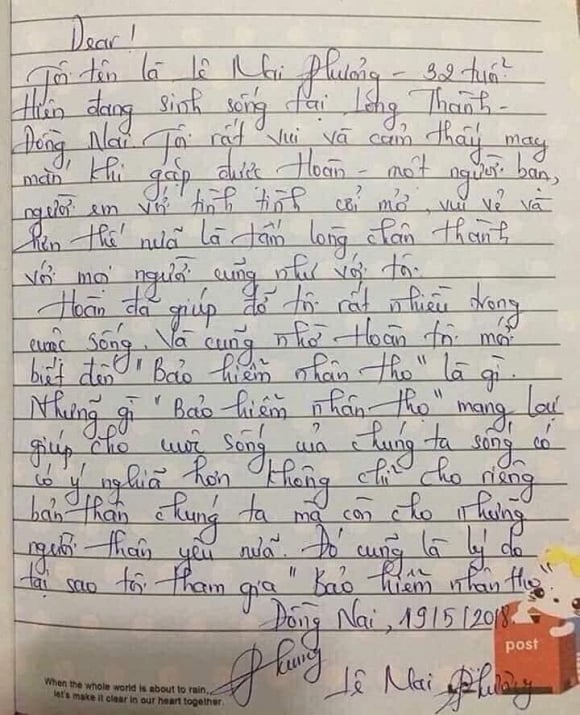 Dear!
Tôi tên là Lê Mai Phương - 32 tuổi
Hiện đang sinh sống tại Long Thành -
Đồng Nai Tôi rất vui và cảm thấy may
mắn khi gặp được Hoàn - một người bạn,
người em với tính tình cởi mở, vui vẻ và
hơn thế nữa là tấm lòng chân thành
với mọi người cũng như với tôi.
Hoàn đã giúp đỡ tôi rất nhiều trong
cuộc sống. Và cũng nhờ Hoàn tôi mới
biết đến "Bảo hiểm nhân thọ" là gì.
Những gì "Bảo hiểm nhân thọ" mang lại
giúp cho cuộc sống của chúng ta sống có
có ý nghĩa hơn không chỉ cho riêng
bản thân chúng ta mà còn cho những
người thân yêu nữa. Đó cũng là lý do
tại sao tôi tham gia "Bảo hiểm nhân thọ".
Đồng Nai, 19/5/2018.
Phương
Lê Mai Phương
post
When the whole world is about to rain,
let's make it clear in our heart together.